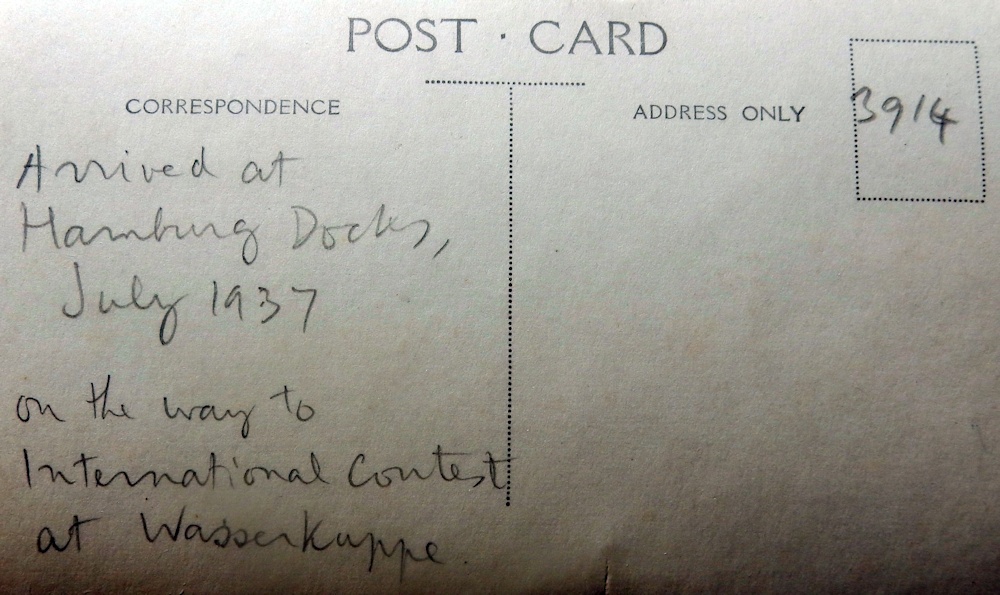 POST · CARD
CORRESPONDENCE
ADDRESS ONLY
3914
Arrived at
Hamburg Docks,
July 1937
on the way to
International Contest
at Wasserkuppe.